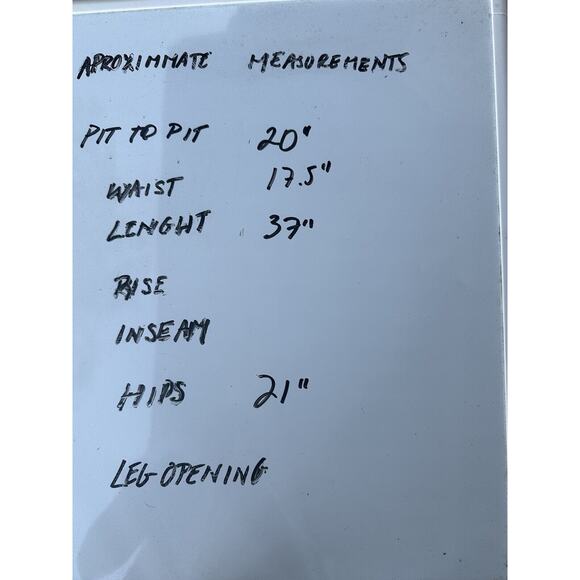 APROXIMMATE MEASUREMENTS
PIT TO PIT 20"
WAIST 17.5"
LENGHT 37"
RISE
INSEAM
HIPS 21"
LEG OPENING